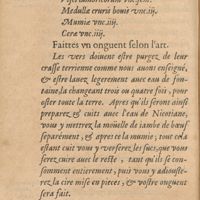 Medullæ cruris bouis vnc.iij.
Mumiæ vnc.iiij.
Ceræ vnc.iiij.
Faittes vn onguent selon l'art.
Les vers doiuent estre purgez de leur
crasse terrienne comme nous auons enseigné,
& estre lauez legerement auec eau de fon-
taine, la changeant trois ou quatre fois, pour
oster toute la terre. Apres qu'ils seront ainsi
preparez, & cuits auec l'eau de Nicotiane,
vous y mettrez la moüelle de iambe de bœuf
separément, & apres ce la mumie; tout cela
estant cuit vous y verserez les sucs, que vous
ferez cuire auec le reste, tant qu'ils se con-
somment entierement, puis vous y adiouste-
rez, la cire mise en pieces, & vostre onguent
sera fait.